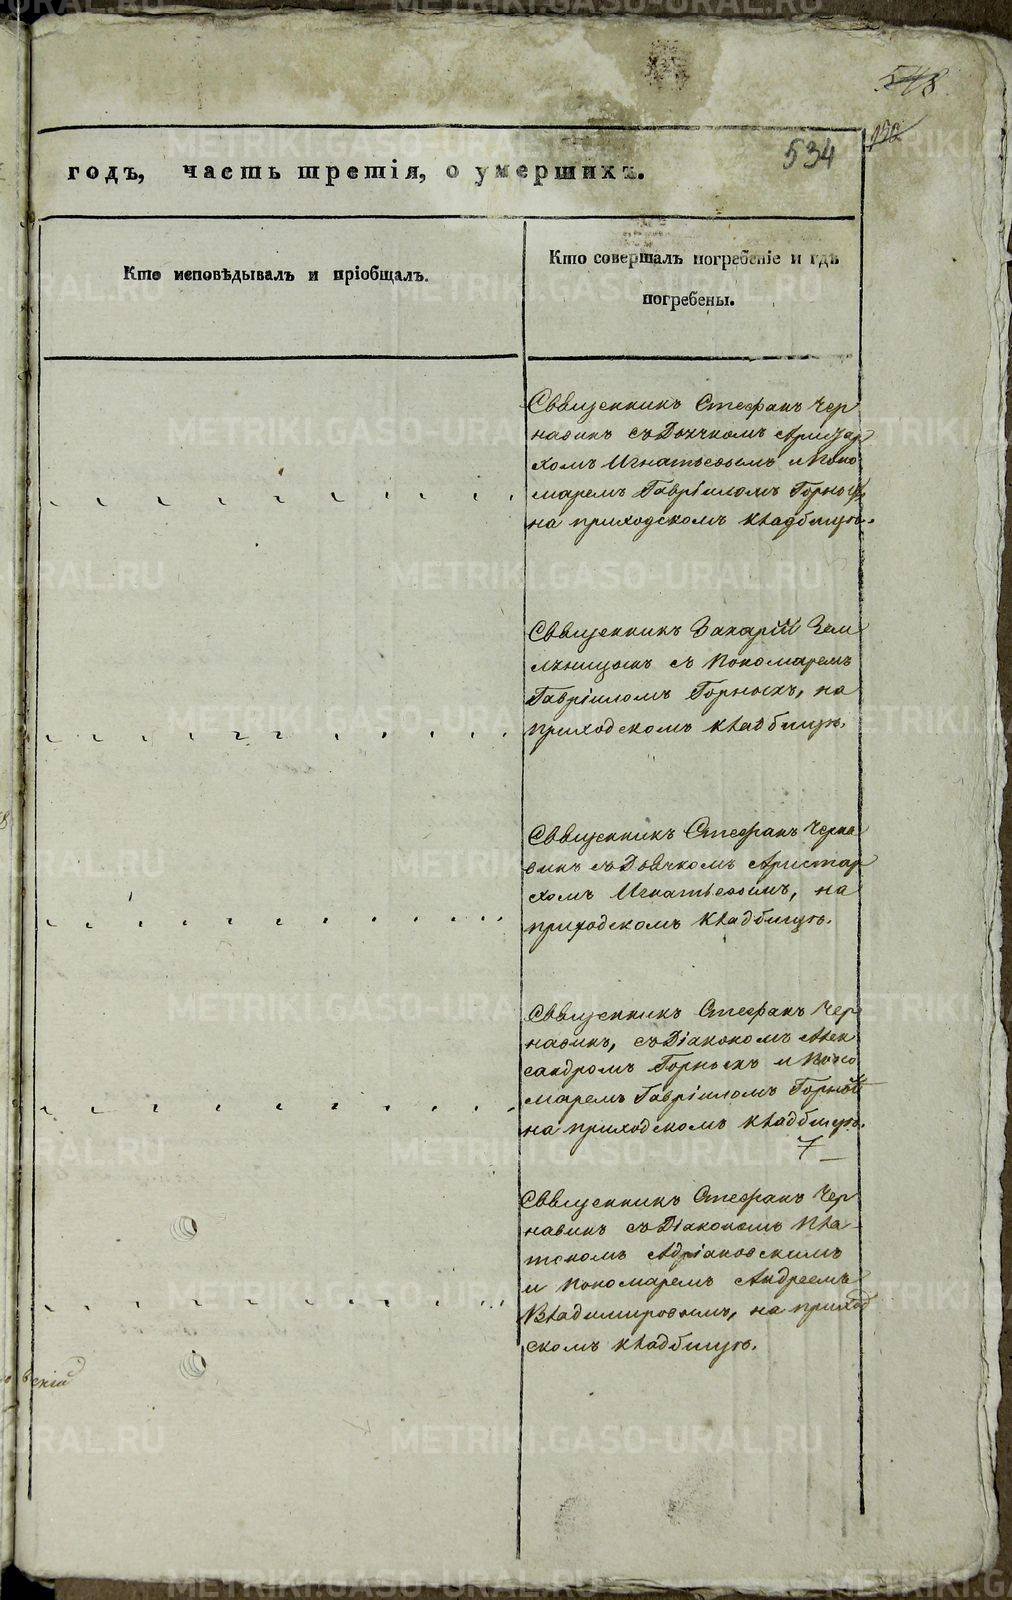 548
534
годъ, часть третія, о умершихъ.
Кто исповѣдывалъ и пріобщалъ.
Кто совершалъ погребеніе и гдѣ
погребены.
Священникъ Стефанъ Чер
навинъ съ Дьячкомъ Аристар
хомъ Игнатьевымъ и Поно
маремъ Гавріиломъ Горныхъ
на приходскомъ кладбищѣ.
Священникъ Захарій Зем
ляницынъ съ Пономаремъ
Гавріиломъ Горныхъ, на
приходскомъ кладбищѣ.
Священникъ Стефанъ Черна
винъ съ Дьячкомъ Аристар
хомъ Игнатьевымъ, на
приходскомъ кладбищѣ.
Священникъ Стефанъ Чер
навинъ, съ Діакономъ Алек
сандромъ Горныхъ и Поно
маремъ Гавріиломъ Горныхъ
на приходскомъ кладбищѣ.
7
Священникъ Стефанъ Чер
навинъ съ Діакономъ Пла-
тономъ Адріановскимъ
и Пономаремъ Андреемъ
Владимировымъ, на приход
скомъ кладбищѣ.
METRIKI.GASO-URAL.RU